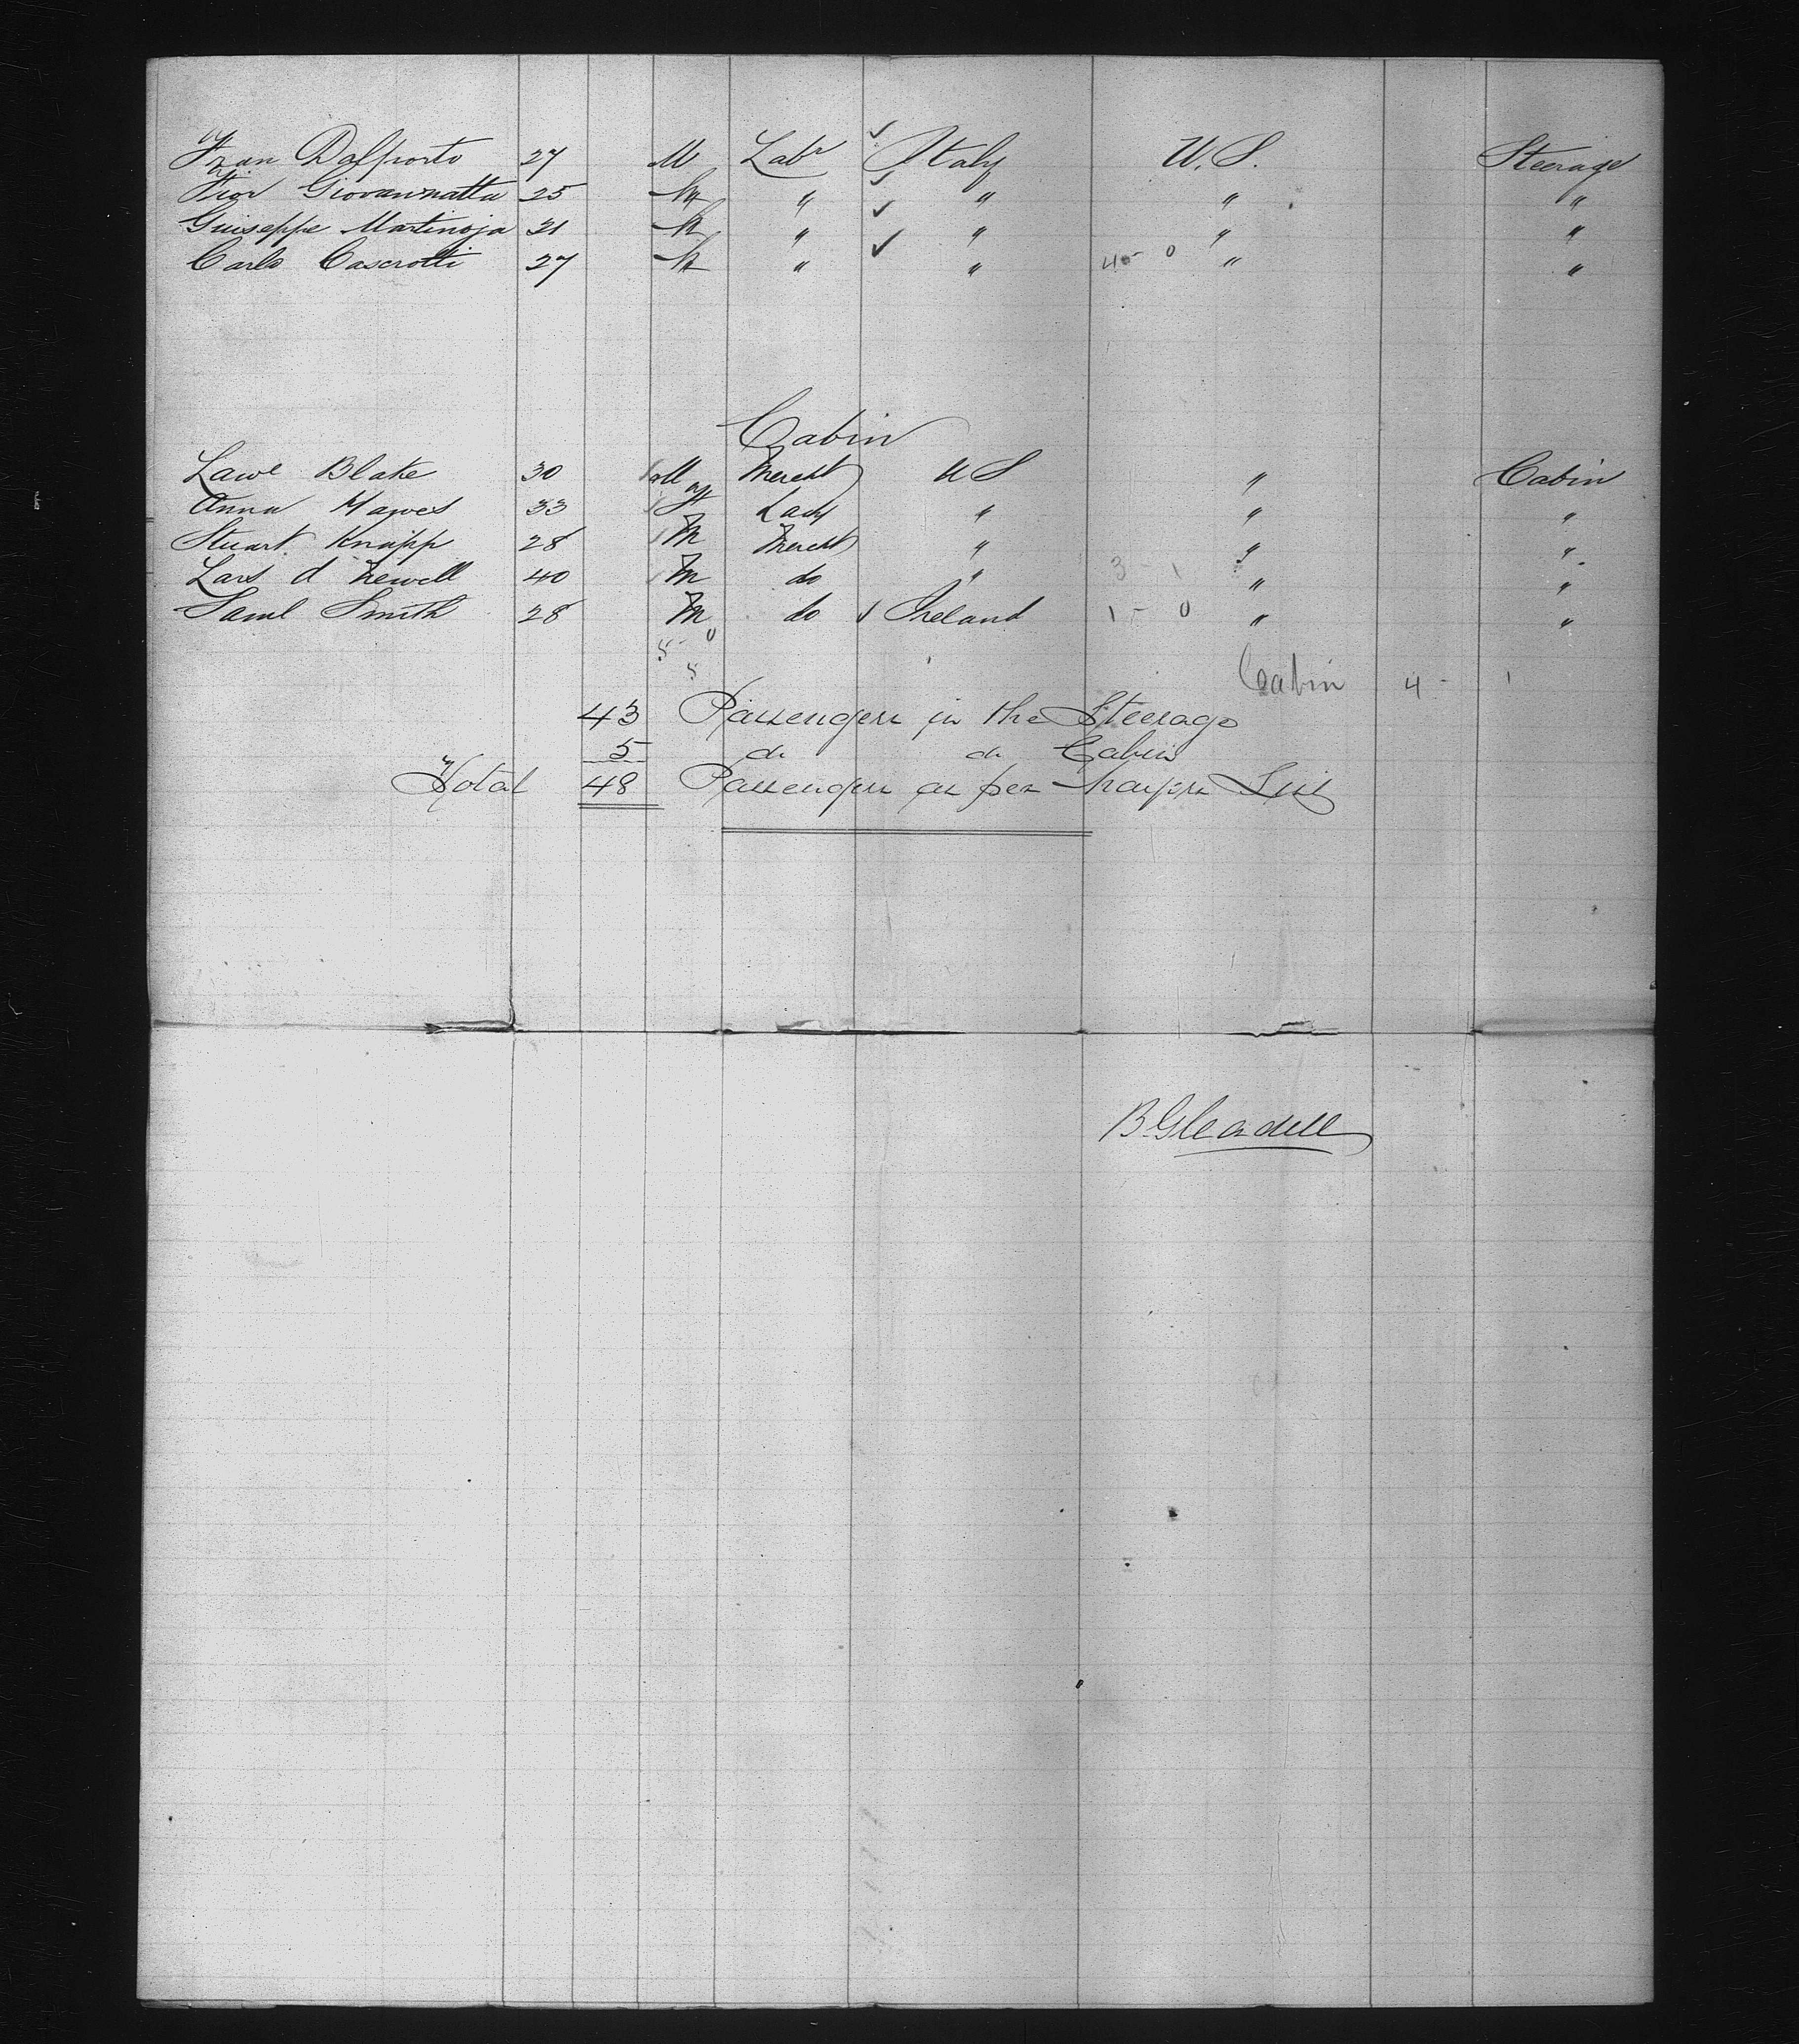 Fran Dalporto 27 M Labr ✓ Italy U.S. Steerage
Fior Giovannatta 25 M " ✓ " " "
Guiseppe Martinoja 21 M " ✓ " " "
Carlo Cascrotti 27 M " ✓ " 4 - 0 " "
Cabin
Lawe Blake 30 M Mercht U S " Cabin
Anna Hawes 33 F Lady " " "
Stuart Knapp 28 M Mercht " " "
Lars d Newell 40 M do " 3 - 1 " "
Saml Smith 28 M do ✓ Ireland 1 - 0 " "
5 - 0
5
Cabin 4 - 1
43 Passengers in the Steerage
5 do do Cabin
Total 48 Passengers as per List
B. Gleadell